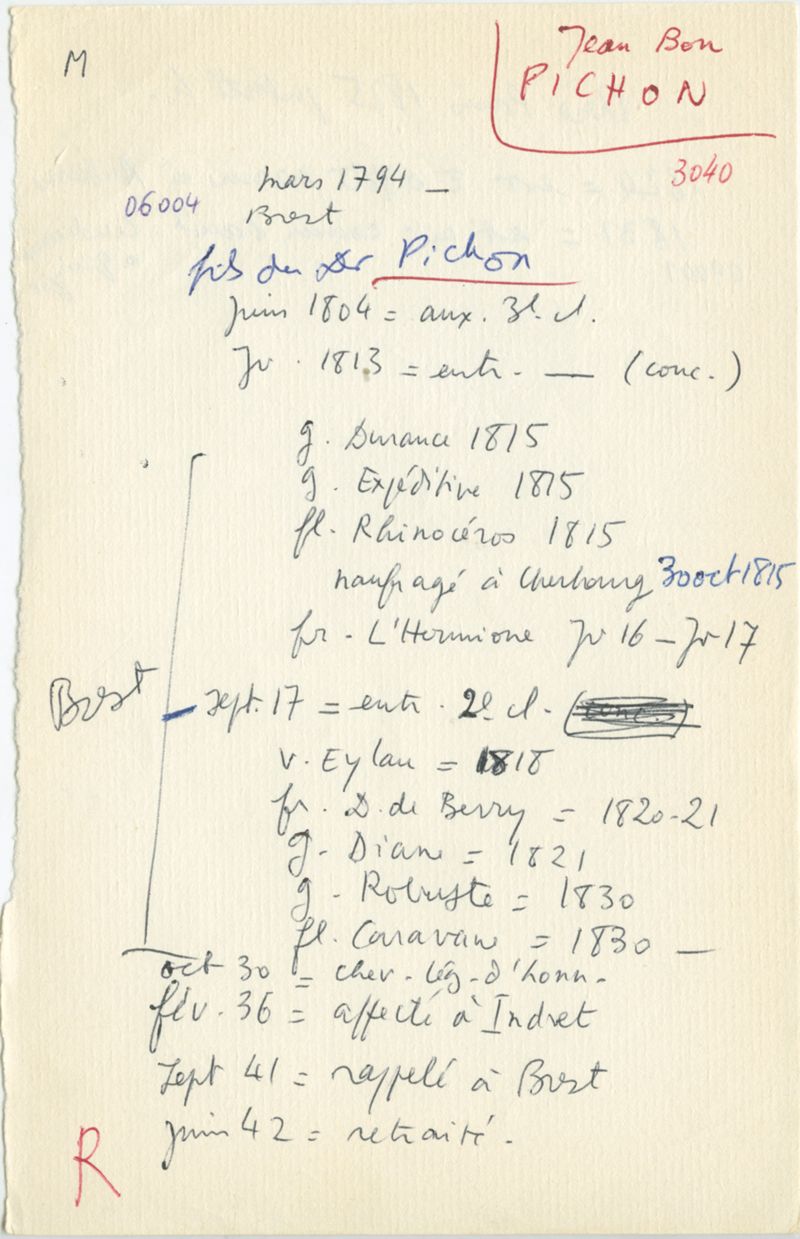 M
Jean Bon
PICHON
3040
mars 1794 _
06004
Brest
fils du Dr Pichon
juin 1804 = aux. 3e cl.
Jr. 1813 = entr. — (conc.)
g. Durance 1815
g. Expéditive 1815
fl. Rhinocéros 1815
naufragé à Cherbourg 30 oct 1815
fr. L'Hermione Jr 16 — Jr 17
Brest
sept. 17 = entr. 2e cl. (conc.)
v. Eylau = 1818
fr. D. de Berry = 1820-21
g. Diane = 1821
g. Robuste = 1830
fl. Caravane = 1830 —
oct 30 = chev. lég. d'honn.
fév. 36 = affecté à Indret
sept 41 = rappelé à Brest
juin 42 = retraité.
R